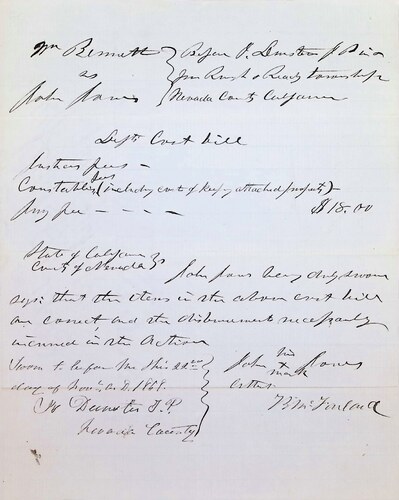 Wm Bennett } Before J. Dunster J P in &
vs } for Rough & Ready township
John Jones } Nevada County California
Defts Cost bill
Justices fees —
Constables fees (including costs of keeping attached property) —
Jury fee — — — — $18.00
State of California }
County of Nevada } John Jones being duly sworn
says that the items in the above cost bill
are correct and the disbursement necessarily
incurred in the Action
Sworn to before me this 22nd
day of Novr. A.D. 1858.
Dunster J. P.
Nevada County
John his x mark Jones